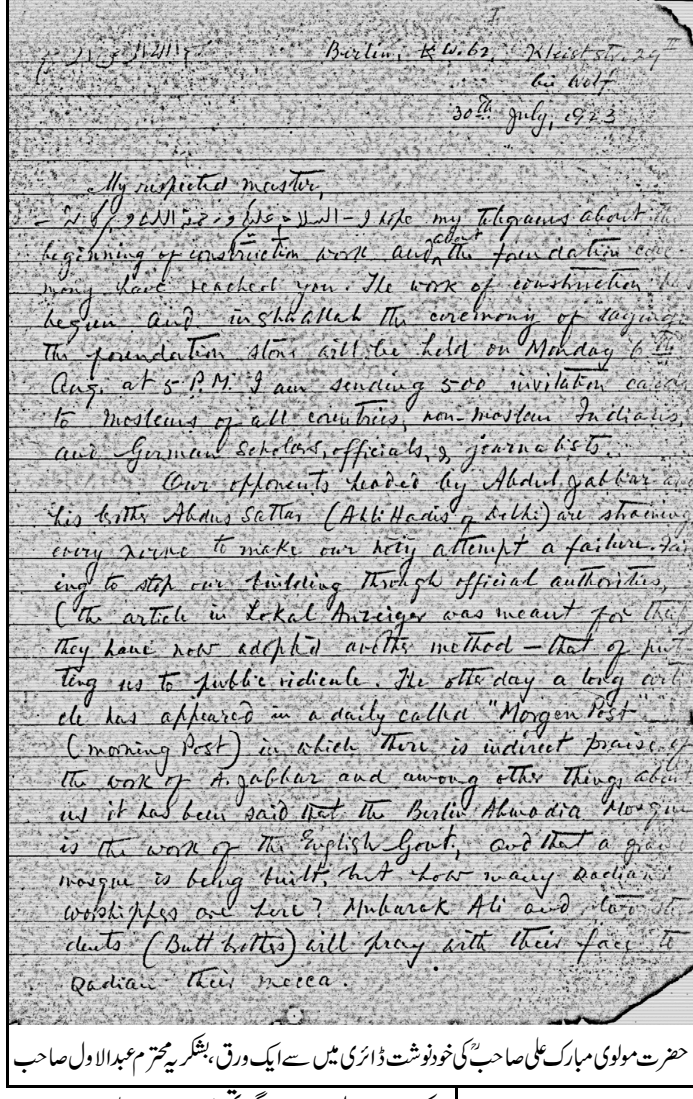 I
Berlin, K W. 62, Kleiststr. 29 II
bei Wolf
30th July, 1923
My respected master,
السلام علیکم ورحمۃ اللہ و برکاتہ - I hope my telegrams about the
beginning of construction work and about the foundation cere
mony have reached you. The work of construction has
begun and inshaallah the ceremony of laying
the foundation stone will be held on Monday 6th
Aug. at 5 P.M. I am sending 500 invitation cards
to moslems of all countries, non-moslem Indians,
and German scholars, officials, & journalists.
Our opponents headed by Abdul Jabbar and
his brother Abdus Sattar (Ahli Hadis of Delhi) are straining
every nerve to make our holy attempt a failure. Fail
ing to stop our building through official authorities,
(the article in Lokal Anzeiger was meant for that)
they have now adopted another method — that of put
ting us to public ridicule. The other day a long arti
cle has appeared in a daily called "Morgen Post"
(morning Post) in which there is indirect praise of
the work of A. Jabbar and among other things about
us it has been said that the Berlin Ahmadia Mosque
is the work of the English Govt., and that a grand
mosque is being built, but how many Qadiani
worshippers are here? Mubarak Ali and stu
dents (Butt brothers) will pray with their face to
Qadian their mecca.
حضرت مولوی مبارک علی صاحبؓ کی خودنوشت ڈائری میں سے ایک ورق، بشکریہ محترم عبدالاول صاحب